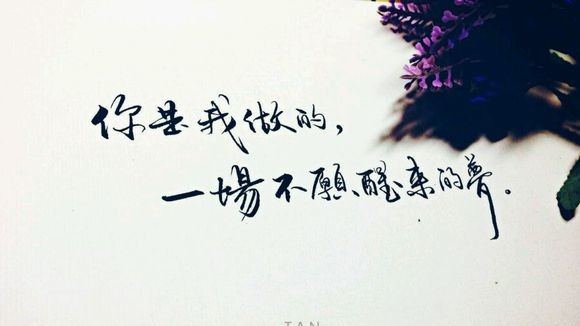 你是我做的，
一場不願醒来的夢。
TAN